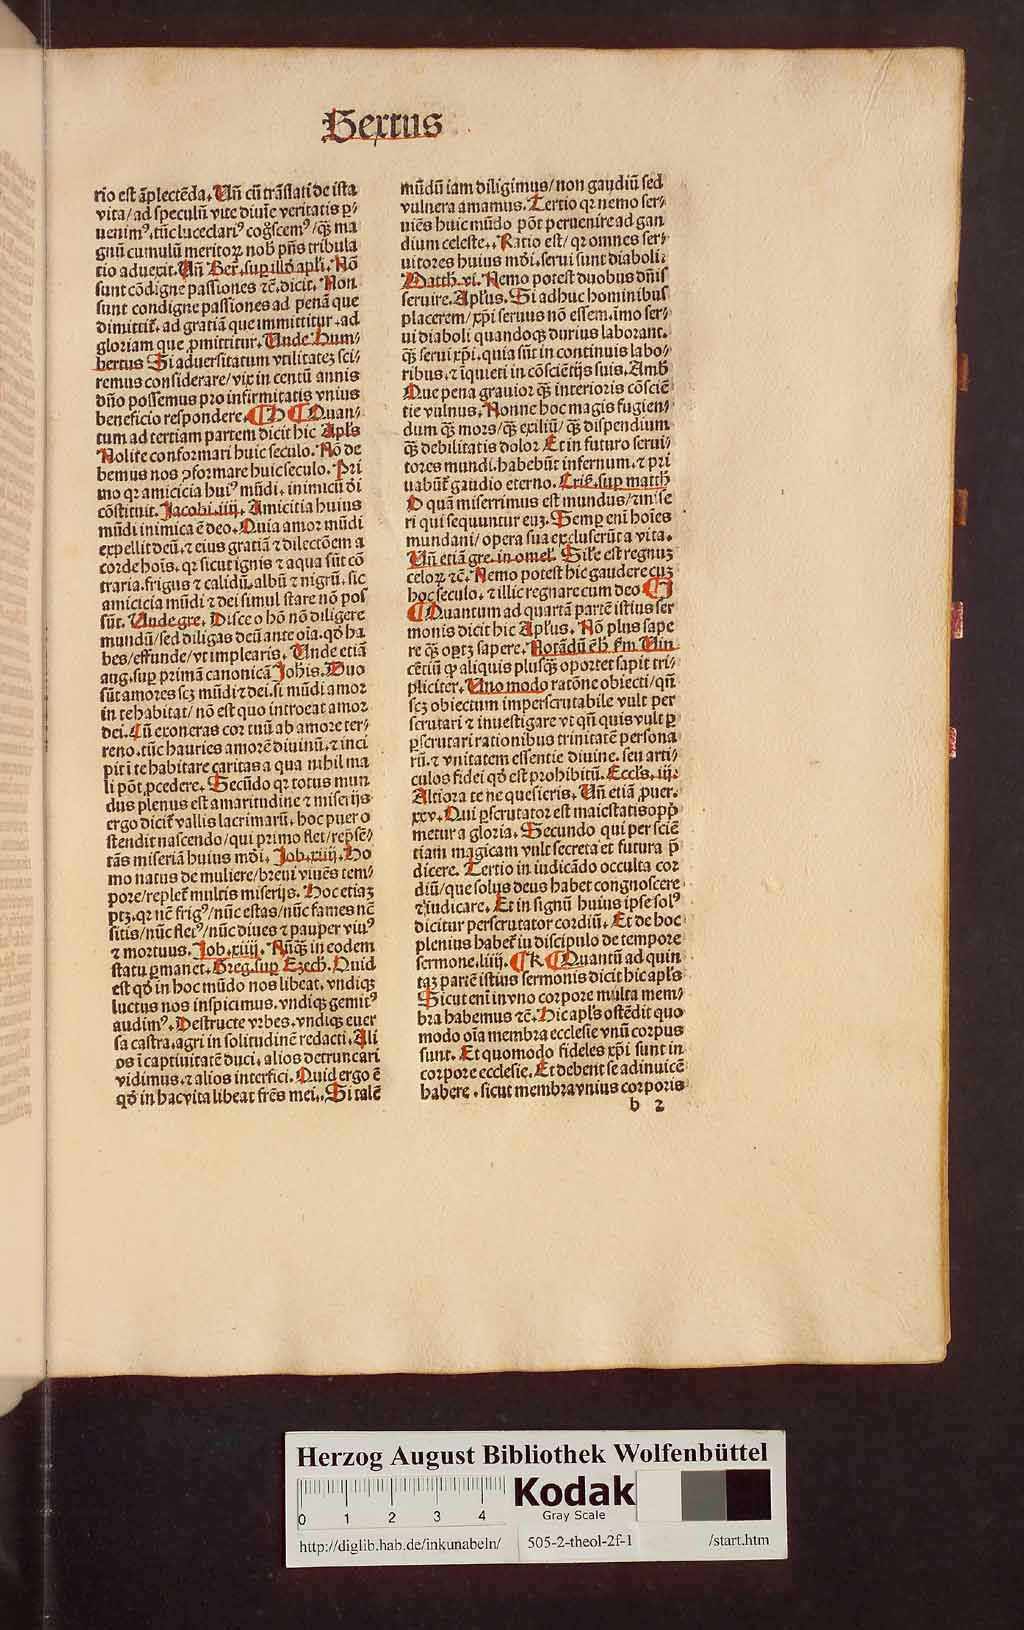 Sextus
rio est āplectēda. Vñ cū trāslati de ista
vita/ad speculū vite diuīe veritatis ꝑ⸗
uenimꝰ, tūc luce clariꝰ cogscemꝰ/qƺ ma
gnū cumulū meritoꝝ nob̄ pñs tribula
tio aduexit. Vñ Ber. sup illd apli. Nō
sunt cōdigne passiones ⁊c̄. dicit. Non
sunt condigne passiones ad penā que
dimittit̄, ad gratiā que immittitur, ad
gloriam que ꝓmittitur. Unde Hum⸗
bertus Si aduersitatum vtilitateƺ sci⸗
remus considerare/vix in centū annis
dño possemus pro infirmitatis vnius
beneficio respondere. ¶ H ¶ Quan⸗
tum ad tertiam partem dicit hic Apls
Nolite conformari huic seculo. Nō de
bemus nos ꝯformare huic seculo. Pri
mo qꝛ amicicia huiꝰ mūdi, inimicū dei
cōstituit. Jacobi.iiij. Amicitia huius
mūdi inimica ē deo. Quia amor mūdi
expellit deū, ⁊ eius gratiā ⁊ dilectōem a
corde hoīs. qꝛ sicut ignis ⁊ aqua sūt cō
traria. frigus ⁊ calidū, albū ⁊ nigrū. sic
amicicia mūdi ⁊ dei simul stare nō pos
sūt. Unde gre. Disce o hō nō diligere
mundū/sed diligas deū ante oīa. qd ha
bes/effunde/vt implearis. Unde etiā
aug. sup primā canonicā Johis. Duo
sūt amores scƺ mūdi ⁊ dei. si mūdi amor
in te habitat/nō est quo introeat amor
dei. Cū exoneras cor tuū ab amore ter⸗
reno, tūc hauries amorē diuinū, ⁊ inci
pit ī te habitare caritas a qua nihil ma
li pōt ꝓcedere. Secūdo qꝛ totus mun
dus plenus est amaritudine ⁊ miserijs
ergo dicit̄ vallis lacrimarū. hoc puer o
stendit nascendo/qui primo flet/repsē⸗
tās miseriā huius mōi. Job.xiiij. Ho
mo natus de muliere/breui viuēs tem⸗
pore/replet̄ multis miserijs. Hoc etiaƺ
ptƺ. qꝛ nē frigꝰ/nūc estas/nūc fames nē
sitis/nūc fletꝰ/nūc diues ⁊ pauper viuꝰ
⁊ mortuus. Job.xiiij. Nūqƺ in eodem
statu ꝑmanet. Greg. sup Ezech. Quid
est qd in hoc mūdo nos libeat, vndiqƺ
luctus nos inspicimus. vndiqƺ gemitꝰ
audimꝰ. Destructe vrbes. vndiqƺ euer
sa castra. agri in solitudinē redacti. Ali
os ī captiuitatē duci, alios detruncari
vidimus. ⁊ alios interfici. Quid ergo ē
qd in hac vita libeat frēs mei. Si talē
mūdū iam diligimus/non gaudiū sed
vulnera amamus. Tertio qꝛ nemo ser⸗
uiēs huic mūdo pōt peruenire ad gau
dium celeste. Ratio est/qꝛ omnes ser⸗
uitores huius mōi. serui sunt diaboli.
Matth.vi. Nemo potest duobus dñis
seruire. Aplus. Si adhuc hominibus
placerem/xpi seruus nō essem. imo ser⸗
ui diaboli quandoqƺ durius laborant.
qƺ serui xpi. quia sūt in continuis labo⸗
ribus. ⁊ īquieti in cōscientijs suis. Amb
Que pena grauior qƺ interioris cōsciē
tie vulnus. Nonne hoc magis fugien⸗
dum qƺ mors/qƺ exiliū/qƺ dispendium
qƺ debilitatis dolor Et in futuro serui⸗
tores mundi. habebūt infernum. ⁊ pri
uabūt̄ gaudio eterno. Cris. sup matth
O quā miserrimus est mundus/⁊ mise
ri qui sequuntur euƺ. Semꝑ enī hoīes
mundani/opera sua excluserūt a vita.
Vñ etiā gre. in omel. Sile est regnuƺ
celoꝝ ⁊c̄. Nemo potest hic gaudere cuƺ
hoc seculo. ⁊ illic regnare cum deo ¶ J
¶ Quantum ad quartā partē istius ser
monis dicit hic Aplus. Nō plus sape
re qƺ optƺ sapere. Notādū ē h̄ fm Vin
cētiū ꝙ aliquis plusqƺ oportet sapit tri⸗
pliciter. Uno modo ratōne obiecti/qñ
scƺ obiectum imperscrutabile vult per
scrutari ⁊ inuestigare vt qñ quis vult ꝑ
ꝑscrutari rationibus trinitatē persona
rū. ⁊ vnitatem essentie diuine. seu arti⸗
culos fidei qd est prohibitū. Eccls.iij.
Altiora te ne quesieris. Vñ etiā ꝓuer.
xxv. Qui ꝑscrutator est maiestatis opp
metur a gloria. Secundo qui per sciē
tiam magicam vult secreta et futura p̄
dicere. Tertio in iudicādo occulta cor
diū/que solus deus habet congnoscere
⁊ iudicare. Et in signū huius ipse solꝰ
dicitur perscrutator cordiū. Et de hoc
plenius habet̄ in discipulo de tempore
sermone.liiij. ¶ K ¶ Quantū ad quin
taƺ partē istius sermonis dicit hic apls
Sicut enī in vno corpore multa mem⸗
bra habemus ⁊c̄. Hic apls ostēdit quo
modo oīa membra ecclesie vnū corpus
sunt. Et quomodo fideles xpi sunt in
corpore ecclesie. Et debent se adinuicē
habere. sicut membra vnius corporis
b 2
Herzog August Bibliothek Wolfenbüttel
0 1 2 3 4
Kodak
Gray Scale
http://diglib.hab.de/inkunabeln/ 505-2-theol-2f-1 /start.htm